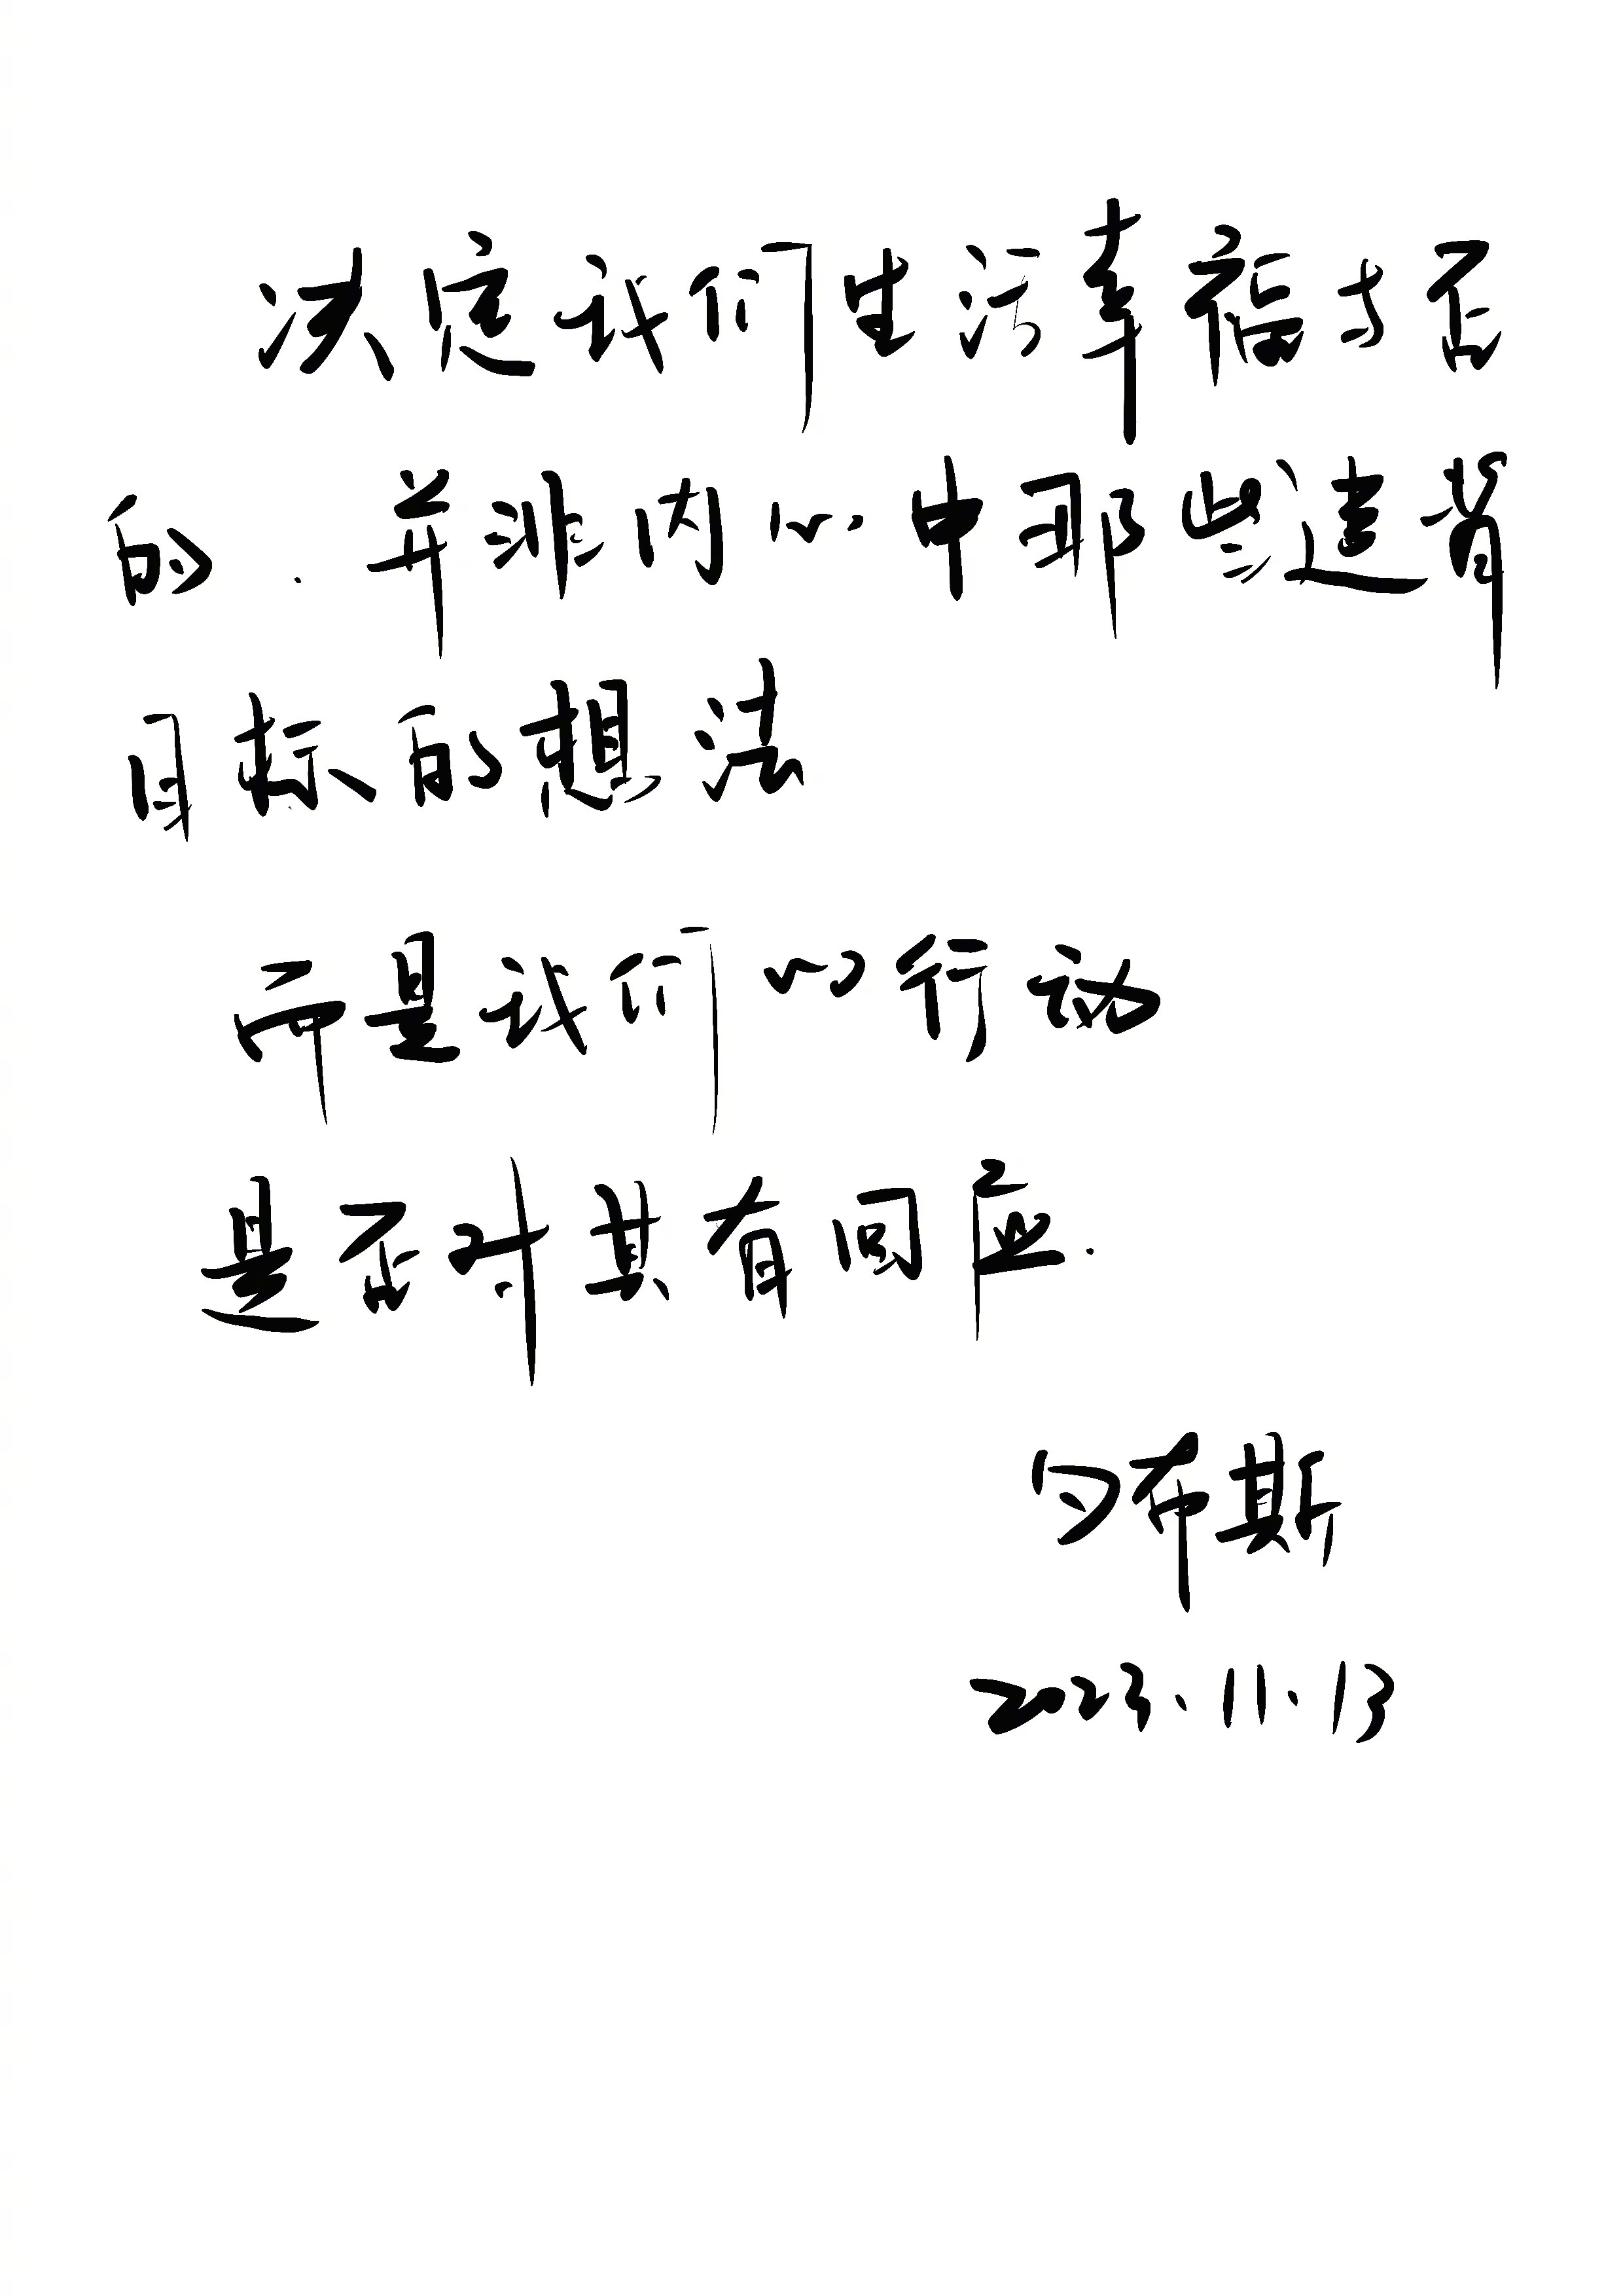 决定我们生活幸福与否
的.并非内心中那些违背
目标的想法
而是我们的行动
是否对其有回应.
勺布斯
2023.11.13